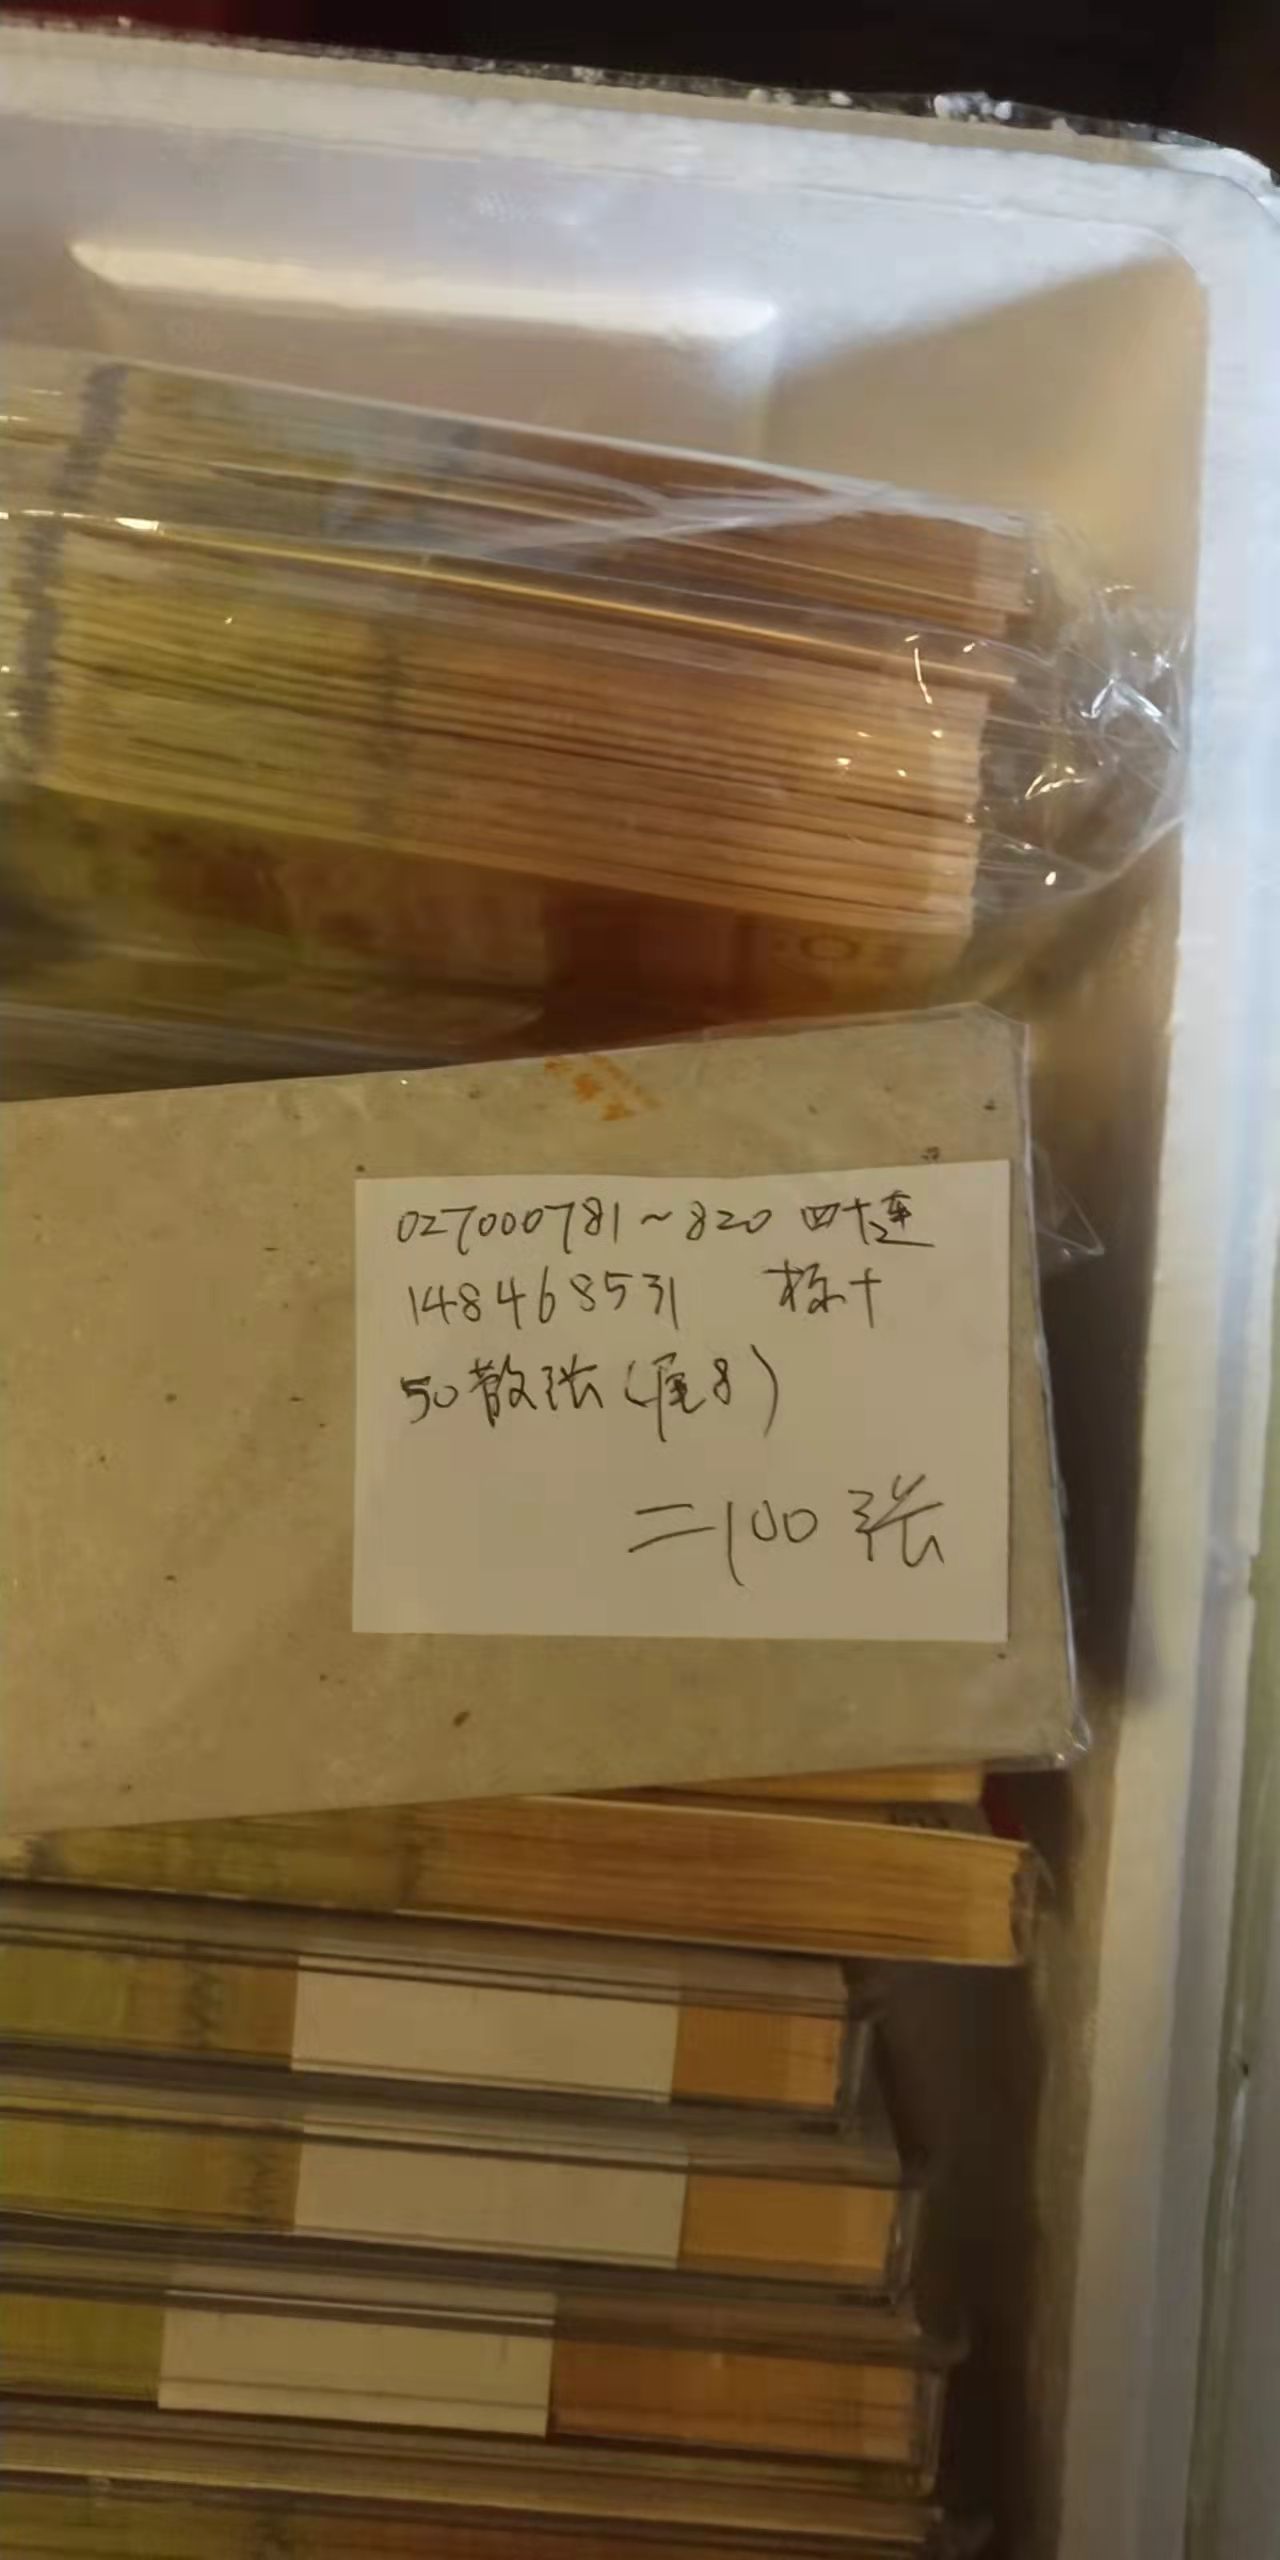 027000781~820 四十连
148468531 标十
50散张(尾8)
=100 张